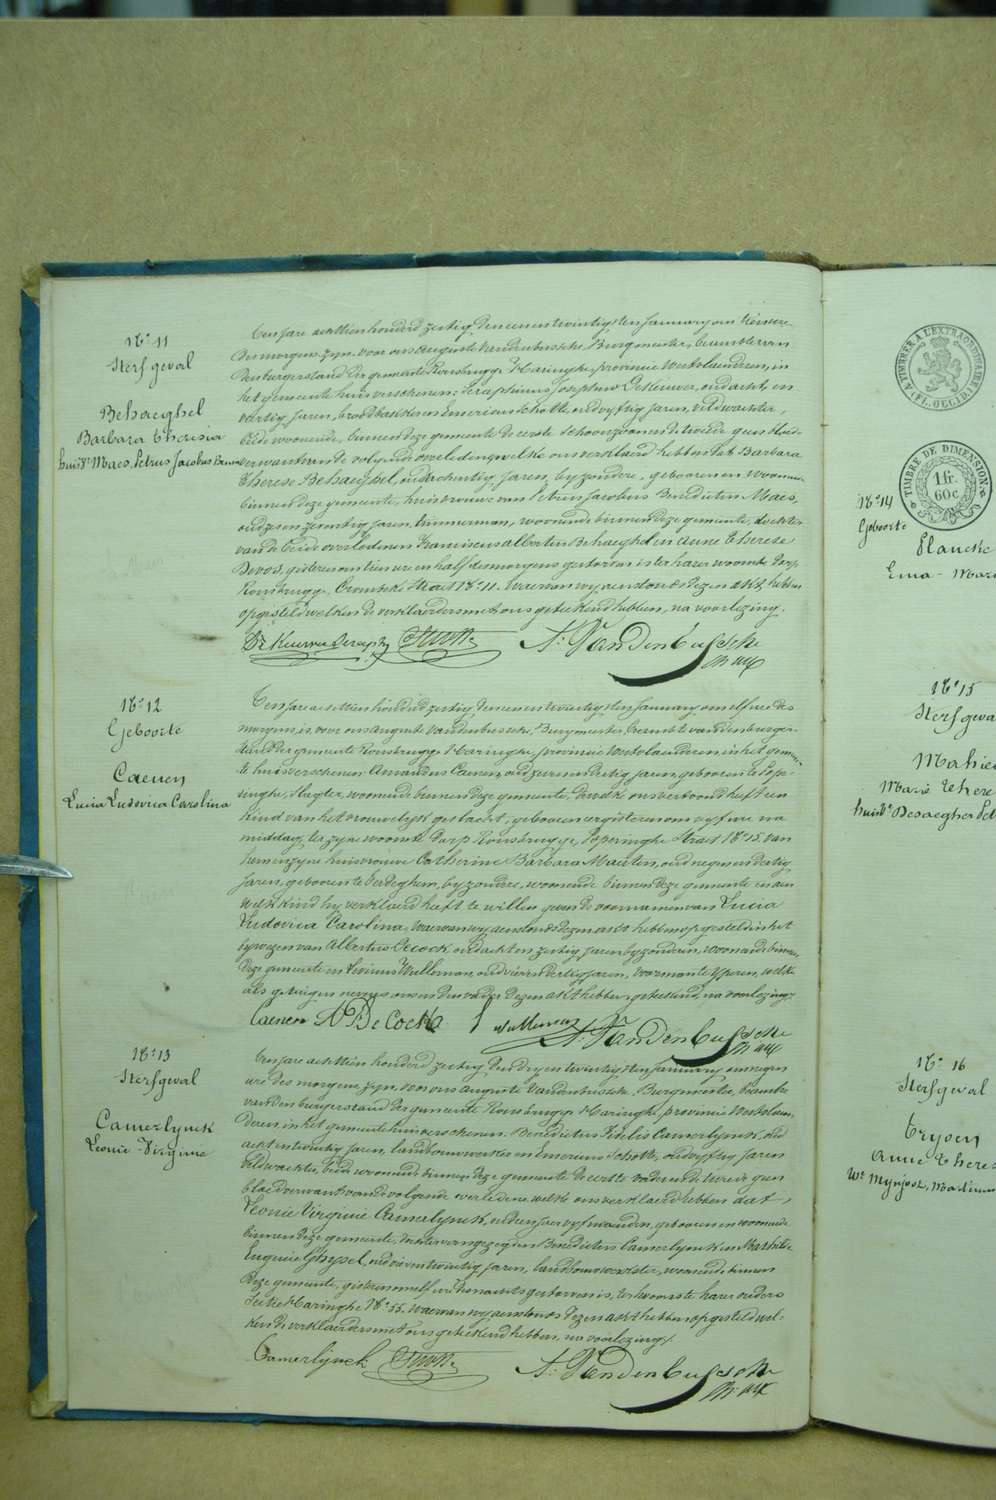 N° 11
Sterfgeval
Behaeghel
Barbara Theresia
huisvr. Maes, Petrus Jacobus Bene
Ten jare achttien honderd zestig, den eenen twintigsten January om tien ure
des morgens zyn voor ons Auguste Vandenbussche, Burgmeester, beambte van
den burgerstand der gemeente Rousbrugge Haringhe, provincie Westvlaenderen, in
het gemeente huis verschenen: Seraphinus Josephus De Keuwer, oud acht en
veertig jaren, broodbakker en Emerianus Schotte, oud vyftig jaren, veldwachter,
beide woonende binnen deze gemeente de eerste schoonzoon en de tweede geen bloed-
verwant van de volgende overledene, welke ons verklaerd hebben dat Barbara
Therese Behaeghel, oud achentig jaren, byzondere, geboren en woonende
binnen deze gemeente, huisvrouw van Petrus Jacobus Benedictus Maes,
oud zes en zeventig jaren, timmerman, woonende binnen deze gemeente, dochter
van de beide overledenen Franciscus Albertus Behaeghel en Anne Therese
Devos, gisteren om tien ure en half des morgens gestorven is ter harer woonste dorp
Rousbrugge, Crombeke Straet N° 11. Waervan wy aenstonds dezen akt hebben
opgesteld welken de verklaerders met ons geteekend hebben, na voorlezing.
De Keuwer Seraph. Schotte A. Vandenbussche
N° 12
Geboorte
Caenen
Lucia Ludovica Carolina
Ten jare achttien honderd zestig, den eenen twintigsten January, om elf ure des
morgens, is voor ons Auguste Vandenbussche, Burgmeester, beambte van den burger-
stand der gemeente Rousbrugge Haringhe, provincie Westvlaenderen, in het gemeen-
te huis verschenen: Amandus Caenen, oud zes en dertig jaren, geboren te Pope-
ringhe, slagter, woonende binnen deze gemeente, dewelke ons vertoond heeft een
kind van het vrouwelyk geslacht, geboren eergisteren om vyf ure na
middag, te zyne woonste dorp Rousbrugge, Poperinghe Straet N° 15, van
hem en zyne huisvrouw Catherine Barbara Maerten, oud negen en dertig
jaren, geboren te Ledeghem, byzondere, woonende binnen deze gemeente en aen
welk kind hy verklaerd heeft te willen geven de voornamen van Lucia
Ludovica Carolina. Waervan wy aenstonds dezen akt hebben opgesteld in het
bywezen van Albertus Decock, oud acht en zestig jaren byzonderen, woonende binnen
deze gemeente en Livinus Wulleman, oud vier en dertig jaren, voerman te Yperen, welke
als getuigen nevens ons en den vader dezen akt hebben geteekend, na voorlezing.
Caenen A. DeCock L. Wulleman A. Vandenbussche
N° 13
Sterfgeval
Camerlynck
Leonie Virginie
Ten jare achttien honderd zestig, den dryen twintigsten January om negen
ure des morgens zyn, voor ons Auguste Vandenbussche, Burgmeester, beambte
van den burgerstand der gemeente Rousbrugge Haringhe, provincie Westvlaen-
deren, in het gemeente huis verschenen: Benedictus Fidelis Camerlynck, oud
acht en twintig jaren, landbouwwerker en Emerianus Schotte, oud vyftig jaren
veldwachter, beide woonende binnen deze gemeente de eerste vader en de tweede geen
bloedverwant van de volgende overledene welke ons verklaerd hebben dat
Leonie Virginie Camerlynck, oud een jaer vyf maenden, geboren en woonende
binnen deze gemeente, dochter van gezegden Benedictus Camerlynck en Mathilde
Eugenie Ghysel, oud vier en twintig jaren, landbouwwerkster, woonende binnen
deze gemeente, gisteren om elf ure des nachts gestorven is, ter woonste harer ouders
Wyk Haringhe N° 55, waervan wy aenstonds dezen akt hebben opgesteld wel-
ken de verklaerders met ons geteekend hebben, na voorlezing.
Camerlijnck Schotte A. Vandenbussche
TIMBRE A L'EXTRAORDINAIRE
(FL. OCCID.)
TIMBRE DE DIMENSION
1 fr.
60 c
N° 14
Geboorte
Plancke
Ema - Mari
N° 15
Sterfgeva
Mahieu
Marie There
huisvr. Desaegher Pe
N° 16
Sterfgeval
Tryoen
Anne Theres
We Mynjoot, Martinus